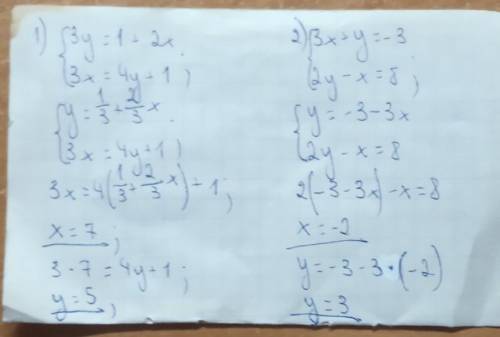 1) { 3y = 1 + 2x
3x = 4y + 1;
{ y = 1/3 + 2/3 x
3x = 4y + 1;
3x = 4(1/3 + 2/3 x) + 1;
x = 7;
3 · 7 = 4y + 1;
y = 5;
2) { 3x + y = -3
2y - x = 8;
{ y = -3 - 3x
2y - x = 8
2(-3 - 3x) - x = 8
x = -2
y = -3 - 3 · (-2)
y = 3